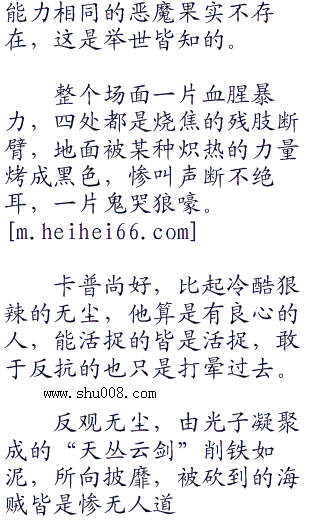 能力相同的恶魔果实不存
在，这是举世皆知的。
整个场面一片血腥暴
力，四处都是烧焦的残肢断
臂，地面被某种炽热的力量
烤成黑色，惨叫声断不绝
耳，一片鬼哭狼嚎。
[m.heihei66.com]
卡普尚好，比起冷酷狠
辣的无尘，他算是有良心的
人，能活捉的皆是活捉，敢
于反抗的也只是打晕过去。
www.shu008.com
反观无尘，由光子凝聚
成的“天丛云剑”削铁如
泥，所向披靡，被砍到的海
贼皆是惨无人道